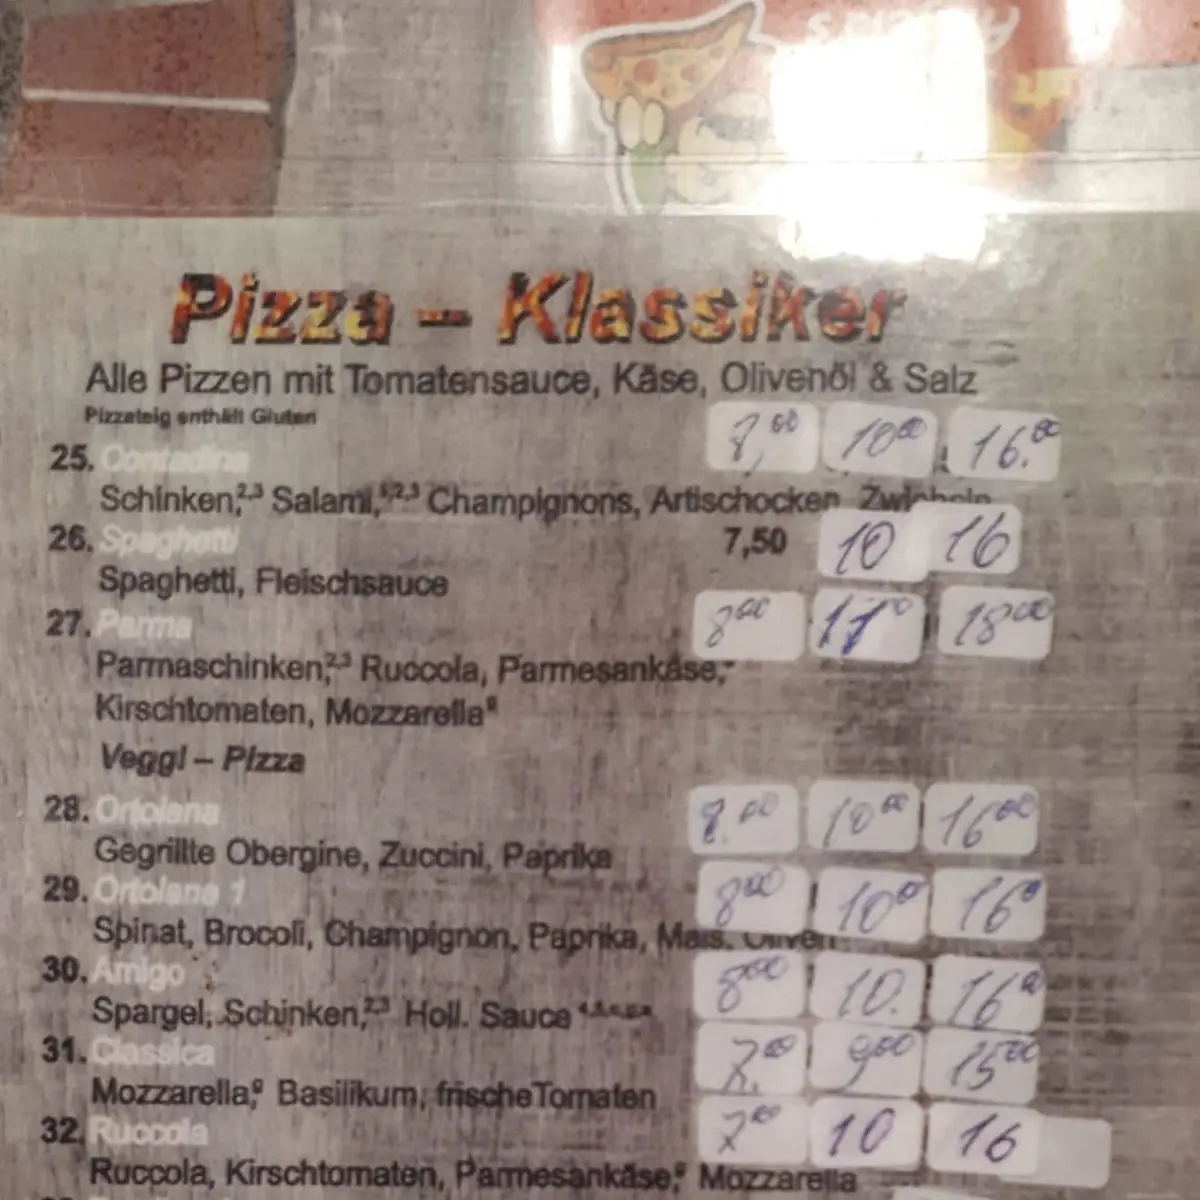 Pizza – Klassiker
Alle Pizzen mit Tomatensauce, Käse, Olivenöl & Salz
Pizzateig enthält Gluten
25. Contadina 10,00 16.00
Schinken,2,3 Salami, Champignons, Artischocken Zwiebeln
26. Spaghetti 7,50 10 16
Spaghetti, Fleischsauce
27. Parma 8,00 18,00
Parmaschinken,2,3 Ruccola, Parmesankäse,
Kirschtomaten, Mozzarella
Veggi – Pizza
28. Ortolana 10,00 16,00
Gegrillte Obergine, Zuccini, Paprika
29. Ortolana 1 8,00 10,0 16,0
Spinat, Brocoli, Champignon, Paprika, Mais. Oliven
30. Amigo 8,00 10. 16,0
Spargel, Schinken,2,3 Holl. Sauce
31. Classica 7.00 9,00 15,00
Mozzarella,g Basilikum, frische Tomaten
32. Ruccola 7,00 10 16
Ruccola, Kirschtomaten, Parmesankäse,g Mozzarella